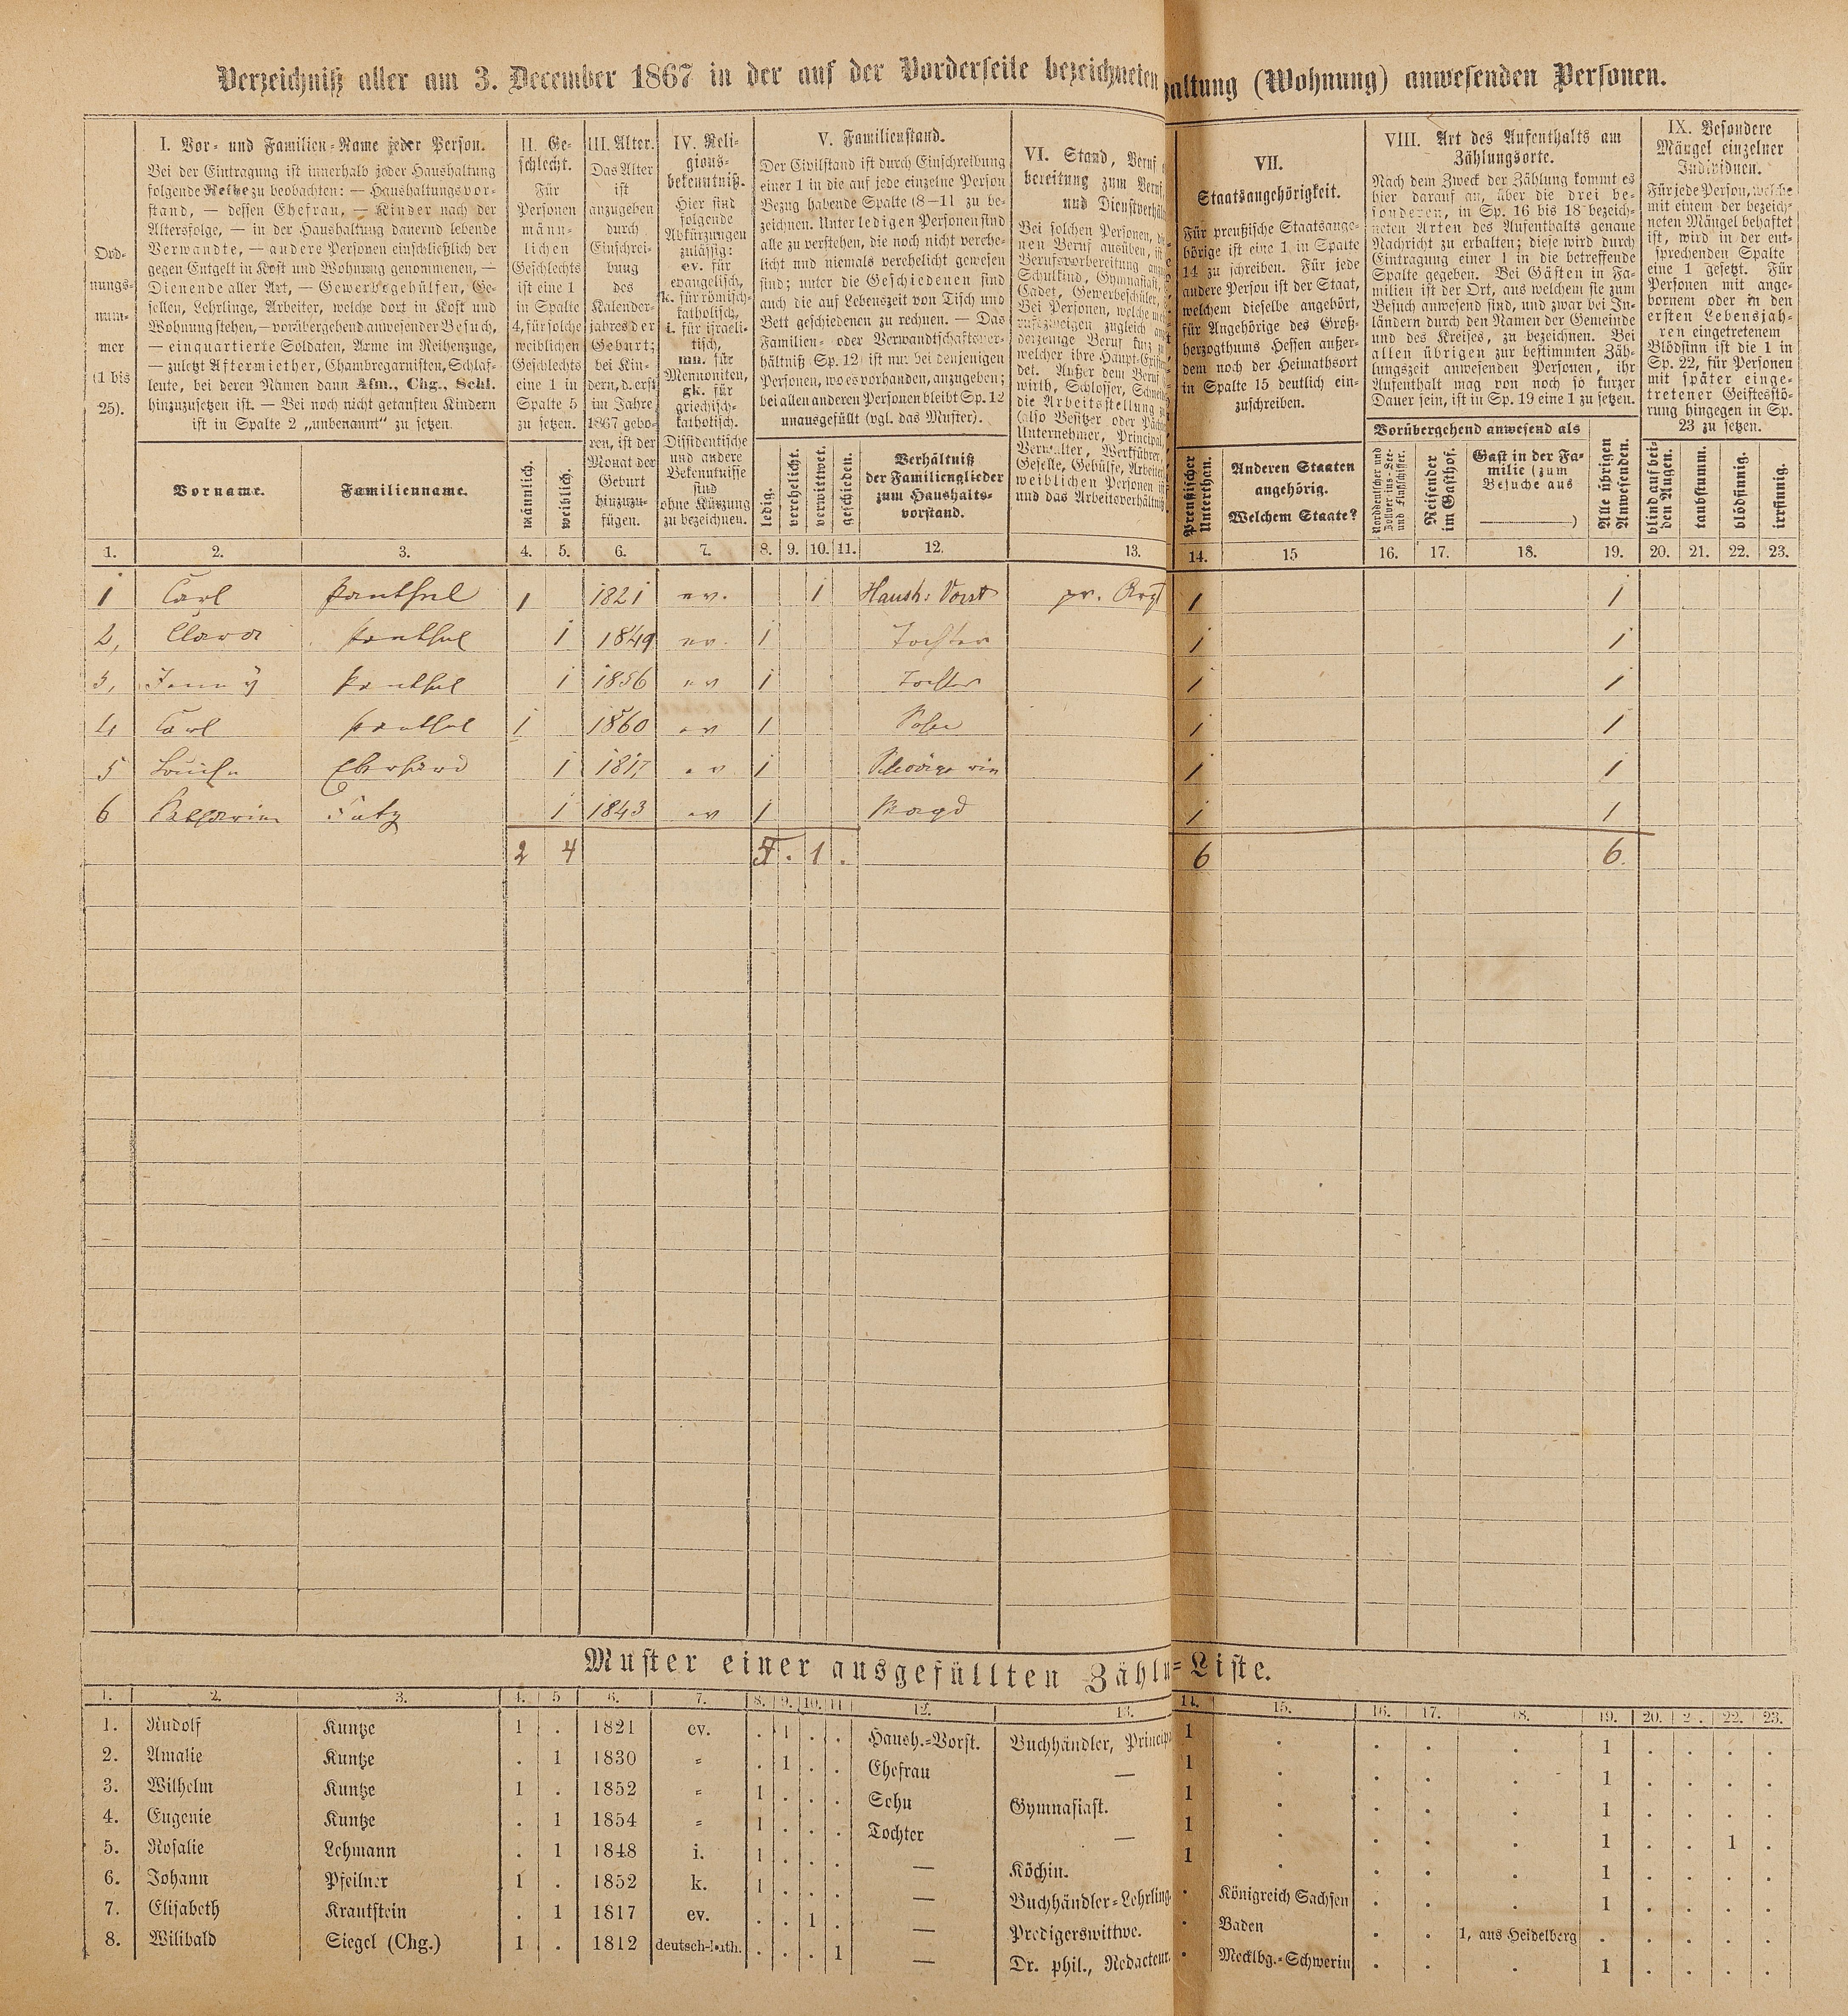 Verzeichniß aller am 3. December 1867 in der auf der Vorderseite bezeichneten
haltung (Wohnung) anwesenden Personen.
Ord-
nungs-
num-
mer
(1 bis
25).
I. Vor- und Familien-Name jeder Person.
Bei der Eintragung ist innerhalb jeder Haushaltung
folgende Reihe zu beobachten: — Haushaltungsvor-
stand, — dessen Ehefrau, — Kinder nach der
Altersfolge, — in der Haushaltung dauernd lebende
Verwandte, — andere Personen einschließlich der
gegen Entgelt in Kost und Wohnung genommenen, —
Dienende aller Art, — Gewerbsgehülfen, Ge-
sellen, Lehrlinge, Arbeiter, welche dort in Kost und
Wohnung stehen, — vorübergehend anwesender Besuch,
— einquartierte Soldaten, Arme im Reihenzuge,
— zuletzt Aftermiether, Chambregarnisten, Schlaf-
leute, bei deren Namen dann Afm., Chg., Schl.
hinzuzusetzen ist. — Bei noch nicht getauften Kindern
ist in Spalte 2 „unbenannt“ zu setzen.
Vorname.
Familienname.
II. Ge-
schlecht.
Für
Personen
männ-
lichen
Geschlechts
ist eine 1
in Spalte
4, für solche
weiblichen
Geschlechts
eine 1 in
Spalte 5
zu setzen.
männlich.
weiblich.
III. Alter.
Das Alter
ist
anzugeben
durch
Einschrei-
bung
des
Kalender-
jahres der
Geburt;
bei Kin-
dern, d. erst
im Jahre
1867 gebo-
ren, ist der
Monat der
Geburt
hinzuzu-
fügen.
IV. Reli-
gions-
bekenntniß.
Hier sind
folgende
Abkürzungen
zulässig:
ev. für
evangelisch,
k. für römisch-
katholisch,
i. für israeli-
tisch,
mn. für
Mennoniten,
gk. für
griechisch-
katholisch.
Dissidentische
und andere
Bekenntnisse
sind
ohne Kürzung
zu bezeichnen.
V. Familienstand.
Der Civilstand ist durch Einschreibung
einer 1 in die auf jede einzelne Person
Bezug habende Spalte (8–11) zu be-
zeichnen. Unter ledigen Personen sind
alle zu verstehen, die noch nicht verehe-
licht und niemals verehelicht gewesen
sind; unter die Geschiedenen sind
auch die auf Lebenszeit von Tisch und
Bett geschiedenen zu rechnen. — Das
Familien- oder Verwandtschaftsver-
hältniß (Sp. 12) ist nur bei denjenigen
Personen, wo es vorhanden, anzugeben;
bei allen anderen Personen bleibt Sp. 12
unausgefüllt (vgl. das Muster).
ledig.
verehelicht.
verwittwet.
geschieden.
Verhältniß
der Familienglieder
zum Haushalts-
vorstand.
VI. Stand, Beruf
bereitung zum Beruf,
und Dienstverhäl
Bei solchen Personen,
nen Beruf ausüben, ist
Berufsvorbereitung
Schulkind, Gymnasiast,
Cadet, Gewerbeschüler,
Bei Personen, welche
rufszweigen zugleich
derjenige Beruf
welcher ihre Haupt-
det. Außer dem Beruf
wirth, Schlosser,
die Arbeitsstellung
(also Besitzer oder Pächter
Unternehmer, Principal,
Verwalter, Werkführer,
Geselle, Gehülfe, Arbeiter
weiblichen Personen
und das Arbeitsverhältniß
VII.
Staatsangehörigkeit.
Für preußische Staatsange-
hörige ist eine 1 in Spalte
14 zu schreiben. Für jede
andere Person ist der Staat,
welchem dieselbe angehört,
für Angehörige des Groß-
herzogthums Hessen außer-
dem noch der Heimathsort
in Spalte 15 deutlich ein-
zuschreiben.
Preußischer
Unterthan.
Anderen Staaten
angehörig.
Welchem Staate?
VIII. Art des Aufenthalts am
Zählungsorte.
Nach dem Zweck der Zählung kommt es
hier darauf an, über die drei be-
sonderen, in Sp. 16 bis 18 bezeich-
neten Arten des Aufenthalts genaue
Nachricht zu erhalten; diese wird durch
Eintragung einer 1 in die betreffende
Spalte gegeben. Bei Gästen in Fa-
milien ist der Ort, aus welchem sie zum
Besuch anwesend sind, und zwar bei In-
ländern durch den Namen der Gemeinde
und des Kreises, zu bezeichnen. Bei
allen übrigen zur bestimmten Zäh-
lungszeit anwesenden Personen, ihr
Aufenthalt mag von noch so kurzer
Dauer sein, ist in Sp. 19 eine 1 zu setzen.
Vorübergehend anwesend als
Norddeutscher und
Zollvereins-See-
und Flußschiffer.
Reisender
im Gasthof.
Gast in der Fa-
milie (zum
Besuche aus
)
Alle übrigen
Anwesenden.
IX. Besondere
Mängel einzelner
Individuen.
Für jede Person, welche
mit einem der bezeich-
neten Mängel behaftet
ist, wird in der ent-
sprechenden Spalte
eine 1 gesetzt. Für
Personen mit ange-
bornem oder in den
ersten Lebensjah-
ren eingetretenem
Blödsinn ist die 1 in
Sp. 22, für Personen
mit später einge-
tretener Geistesstö-
rung hingegen in Sp.
23 zu setzen.
blind auf bei-
den Augen.
taubstumm.
blödsinnig.
irrsinnig.
1. 2. 3. 4. 5. 6. 7. 8. 9. 10. 11. 12. 13. 14. 15 16. 17. 18. 19. 20. 21. 22. 23.
1 Carl Panthel 1 1821 ev. 1 Haush: Vorst pr. Arzt 1 1
2, Clara Panthel 1 1849 ev. 1 Tochter 1 1
3, Jenny Panthel 1 1856 ev 1 Tochter 1 1
4 Carl Panthel 1 1860 ev 1 Sohn 1 1
5 Louise Eberhard 1 1817 ev 1 1 1
6 Catharine 1 1843 ev 1 Magd 1 1
2 4 5. 1. 6 6.
Muster einer ausgefüllten Zähl-Liste.
1. 2. 3. 4. 5 6. 7. 8. 9. 10. 11 12. 13. 14. 15. 16. 17. 18. 19. 20. 2. 22. 23.
1. Rudolf Kuntze 1 . 1821 ev. . 1 . . Haush.-Vorst. Buchhändler, Princip 1 . . . . 1 . . . .
2. Amalie Kuntze . 1 1830 „ . 1 . . Ehefrau — 1 . . . . 1 . . . .
3. Wilhelm Kuntze 1 . 1852 „ 1 . . . Sohn Gymnasiast. 1 . . . . 1 . . . .
4. Eugenie Kuntze . 1 1854 „ 1 . . . Tochter — 1 . . . . 1 . . 1 .
5. Rosalie Lehmann . 1 1848 i. 1 . . . — Köchin. 1 . . . . 1 . . . .
6. Johann Pfeilner 1 . 1852 k. 1 . . . — Buchhändler-Lehrling. . Königreich Sachsen . . . 1 . . . .
7. Elisabeth Krautstein . 1 1817 ev. . . 1 . — Predigerswittwe. . Baden . . 1, aus Heidelberg . . . . .
8. Wilibald Siegel (Chg.) 1 . 1812 deutsch-kath. . . . 1 — Dr. phil., Redacteur. . Mecklbg.-Schwerin . . . 1 . . . .